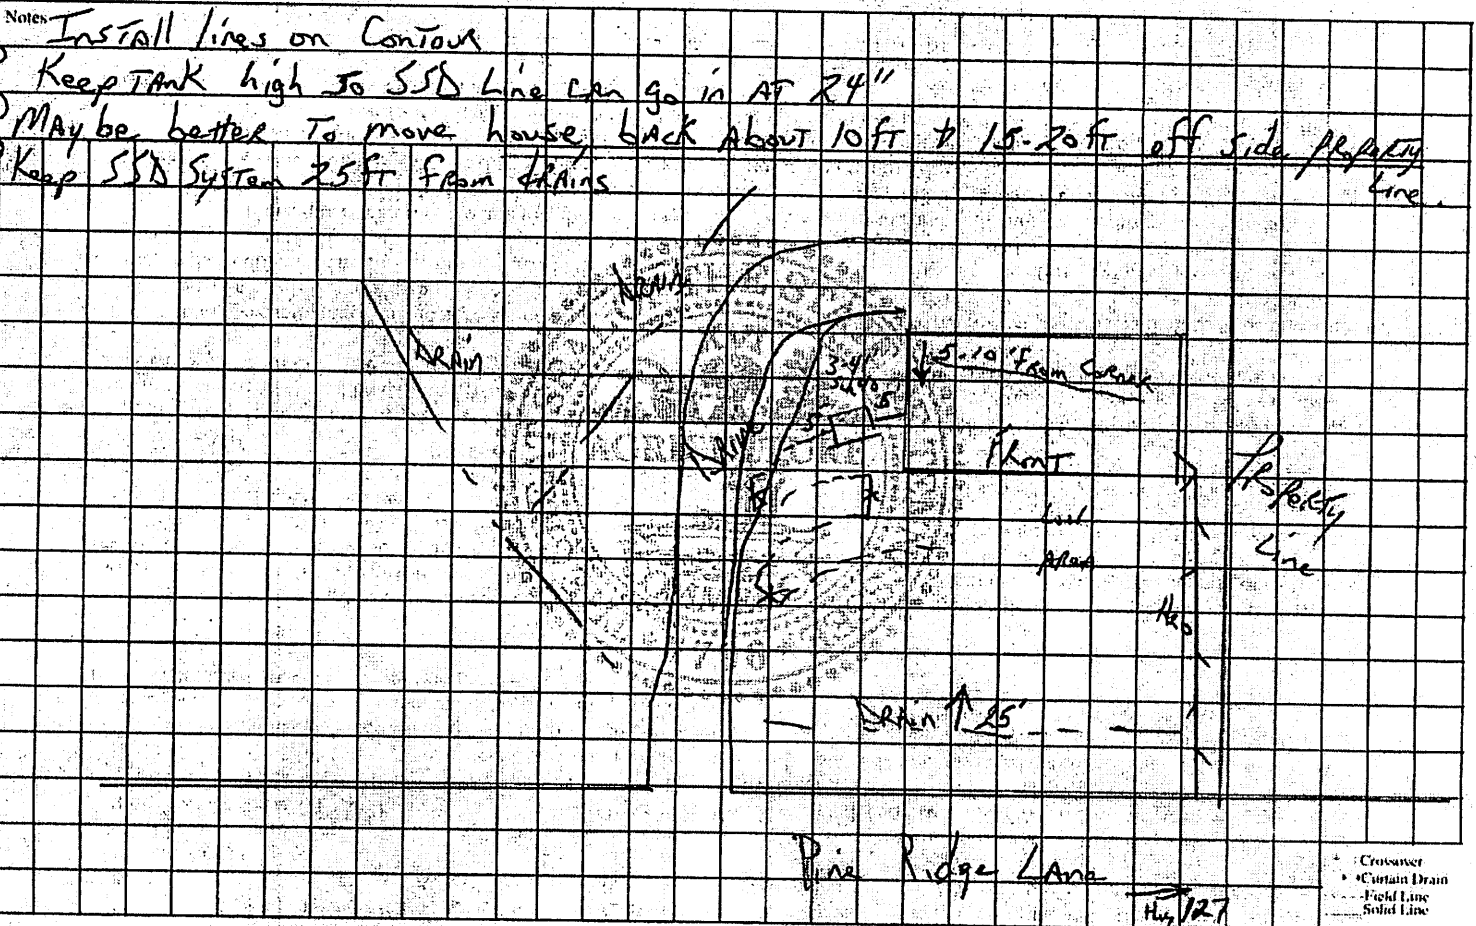 Notes Install lines on Contour
Keep TANK high so SSD Line can go in AT 24"
MAy be better To move house back About 10ft & 15-20ft off side property Line.
Keep SSD System 25ft from drains
DRAIN
DRAIN
5-10' from Corner
3-4'
5'
5'
DRAIN
FRONT
Property
Line
Low
AREA
H2O
DRAIN 25'
Pine Ridge LAne
Hwy 127
Crossover
Curtain Drain
Field Line
Solid Line